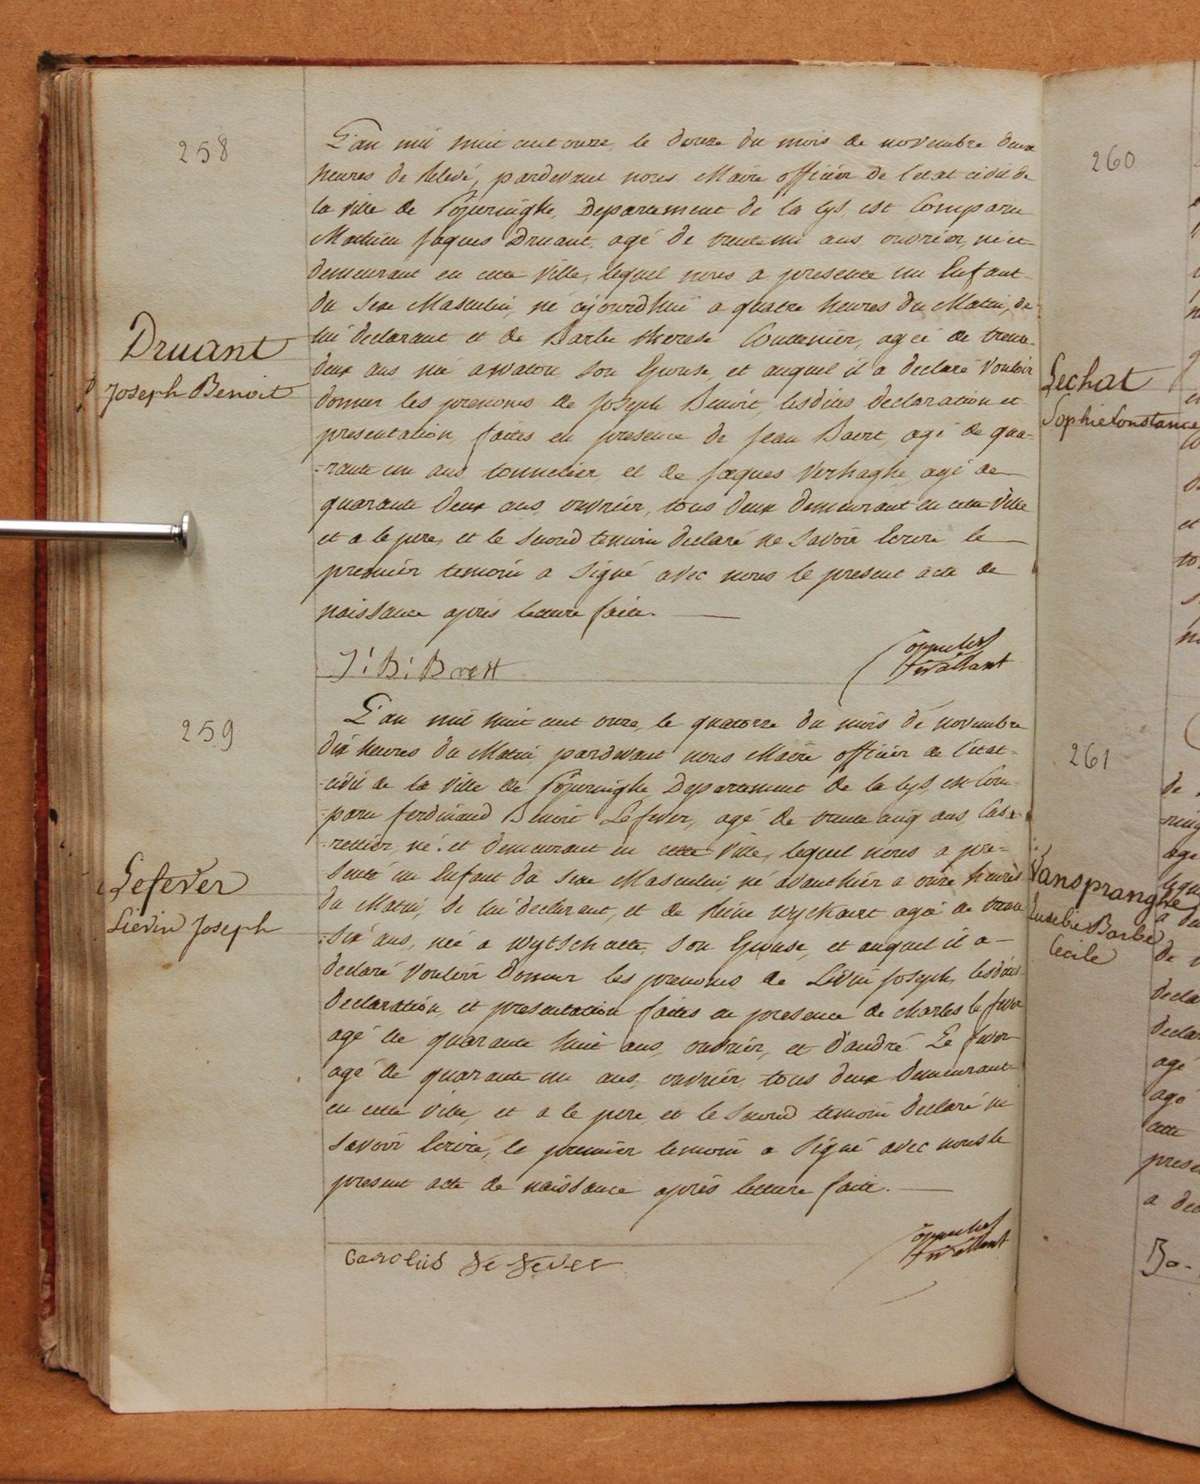 258
L'an mil huit cent onze, le douze du mois de novembre deux
heures de relevé, pardevant nous Maire officier de l'état civil de
la ville de Poperinghe, Departement de la Lys, est Comparu
Mathieu Jaques Druant, agé de trente un ans, ouvrier, né et
demeurant en cette ville, lequel nous a presenté un Enfant
du Sexe Masculin, né aujourdhui a quatre heures du Matin, de
lui declarant et de Barbe Therese Couttenier, agée de trente
deux ans née a Watou son Epouse, et auquel il a declaré Vouloir
donner les prenoms de Joseph Benoit, lesdites declaration et
presentation, faites en presence de Jean Baert, agé de qua-
-rante un ans tonnelier, et de Jaques Verhaghe, agé de
quarante deux ans, ouvrier, tous deux demeurant en cette Ville
et a le pere, et le second temoin declaré ne Savoir Ecrire le
premier temoin a Signé avec nous le present acte de
naissance après lecture faite.
Druant
Joseph Benoit
J: B: Baert
259
L'an mil huit cent onze, le quatorze du mois de novembre
dix heures du Matin pardevant nous Maire officier de l'état
-civil de la ville de Poperinghe, Departement de la Lys, est Com-
-paru ferdinand Benoit Lefever, agé de trente cinq ans, Caba-
-rettier, né et demeurant en cette Ville, lequel nous a pre-
Senté un Enfant du Sexe Masculin, né avanthier a onze heures
du Matin, de lui declarant, et de Reine Wyckaert agée de trente
Six ans, née a Wytschaete, son Epouse, et auquel il a
declaré Vouloir donner les prenoms de Liévin Joseph, lesdites
Declaration, et presentation faites en presence de Charles le fever
agé de quarante huit ans, ouvrier, et d'andré Le fever
agé de quarante un ans, ouvrier, tous deux demeurant
en cette ville, et a le pere, et le Second temoin declaré ne
Savoir Ecrire, le premier temoin a Signé avec nous le
present acte de naissance après lecture faite.
Lefever
Liévin Joseph
Carolus de fever
260
Lechat
Sophie Constance
261
Vanspranghe
Eusebie Barbe
Cecile